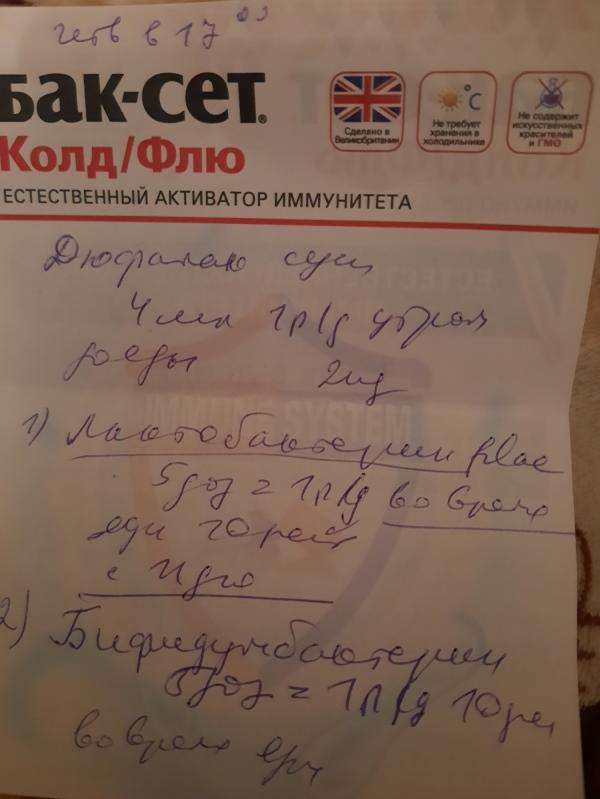 четв в 17⁰⁰
Бак-сет®
Колд/Флю
ЕСТЕСТВЕННЫЙ АКТИВАТОР ИММУНИТЕТА
Сделано в
Великобритании
°C
Не требует
хранения в
холодильнике
Не содержит
искусственных
красителей
и ГМО
Дюфалак сусп
4 мл 1р/д утром
до еды 2нд
1) Лактобактерин flac
5 доз = 1р/д во время
еды 10 дней
2) Бифидумбактерин
5 доз = 1р/д 10 дн
во время еды